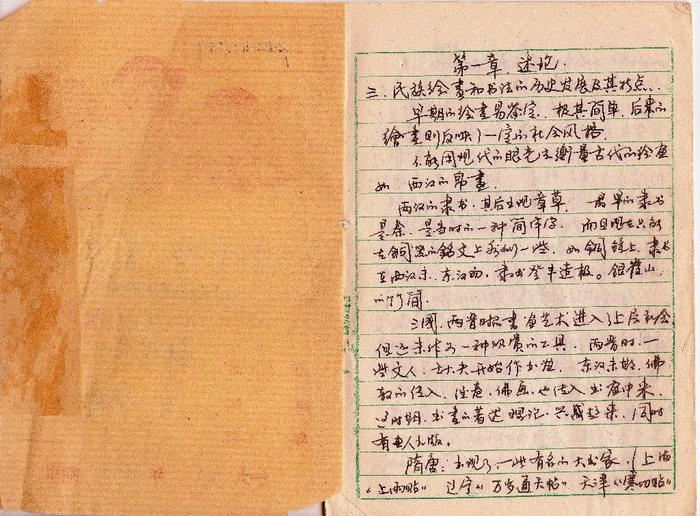 第一章. 述论.
三. 民族绘画和书法的历史发展及其特点.
早期的绘画易鉴定. 极其简单. 后来的
繪画则反映了一定的社会风格.
不能用现代的眼光去衡量古代的绘画
如 西汉的帛畫.
两汉的隶书. 其后出现章草. 最早的隶书
是秦. 是当时的一种简体字. 而且现在只能
在铜器的銘文上看到一些. 如铜镜上. 隶书
在西汉末. 东汉初. 隶书登丰造极。银雀山.
的竹简.
三國. 两晋时书画艺术进入上层社会
但还未作为一种观赏的工具. 两晋时. 一
些文人. 士大夫开始作书画. 东汉末期. 佛
教的传入. 佛画. 也传入书画中来.
这时期. 书画的著述 兴盛起来. 同时
有专人出版。
隋唐: 出现了一些有名的大书家. (上海
"上雨贴" 辽宁"万岁通天帖" 天津"寒切贴"